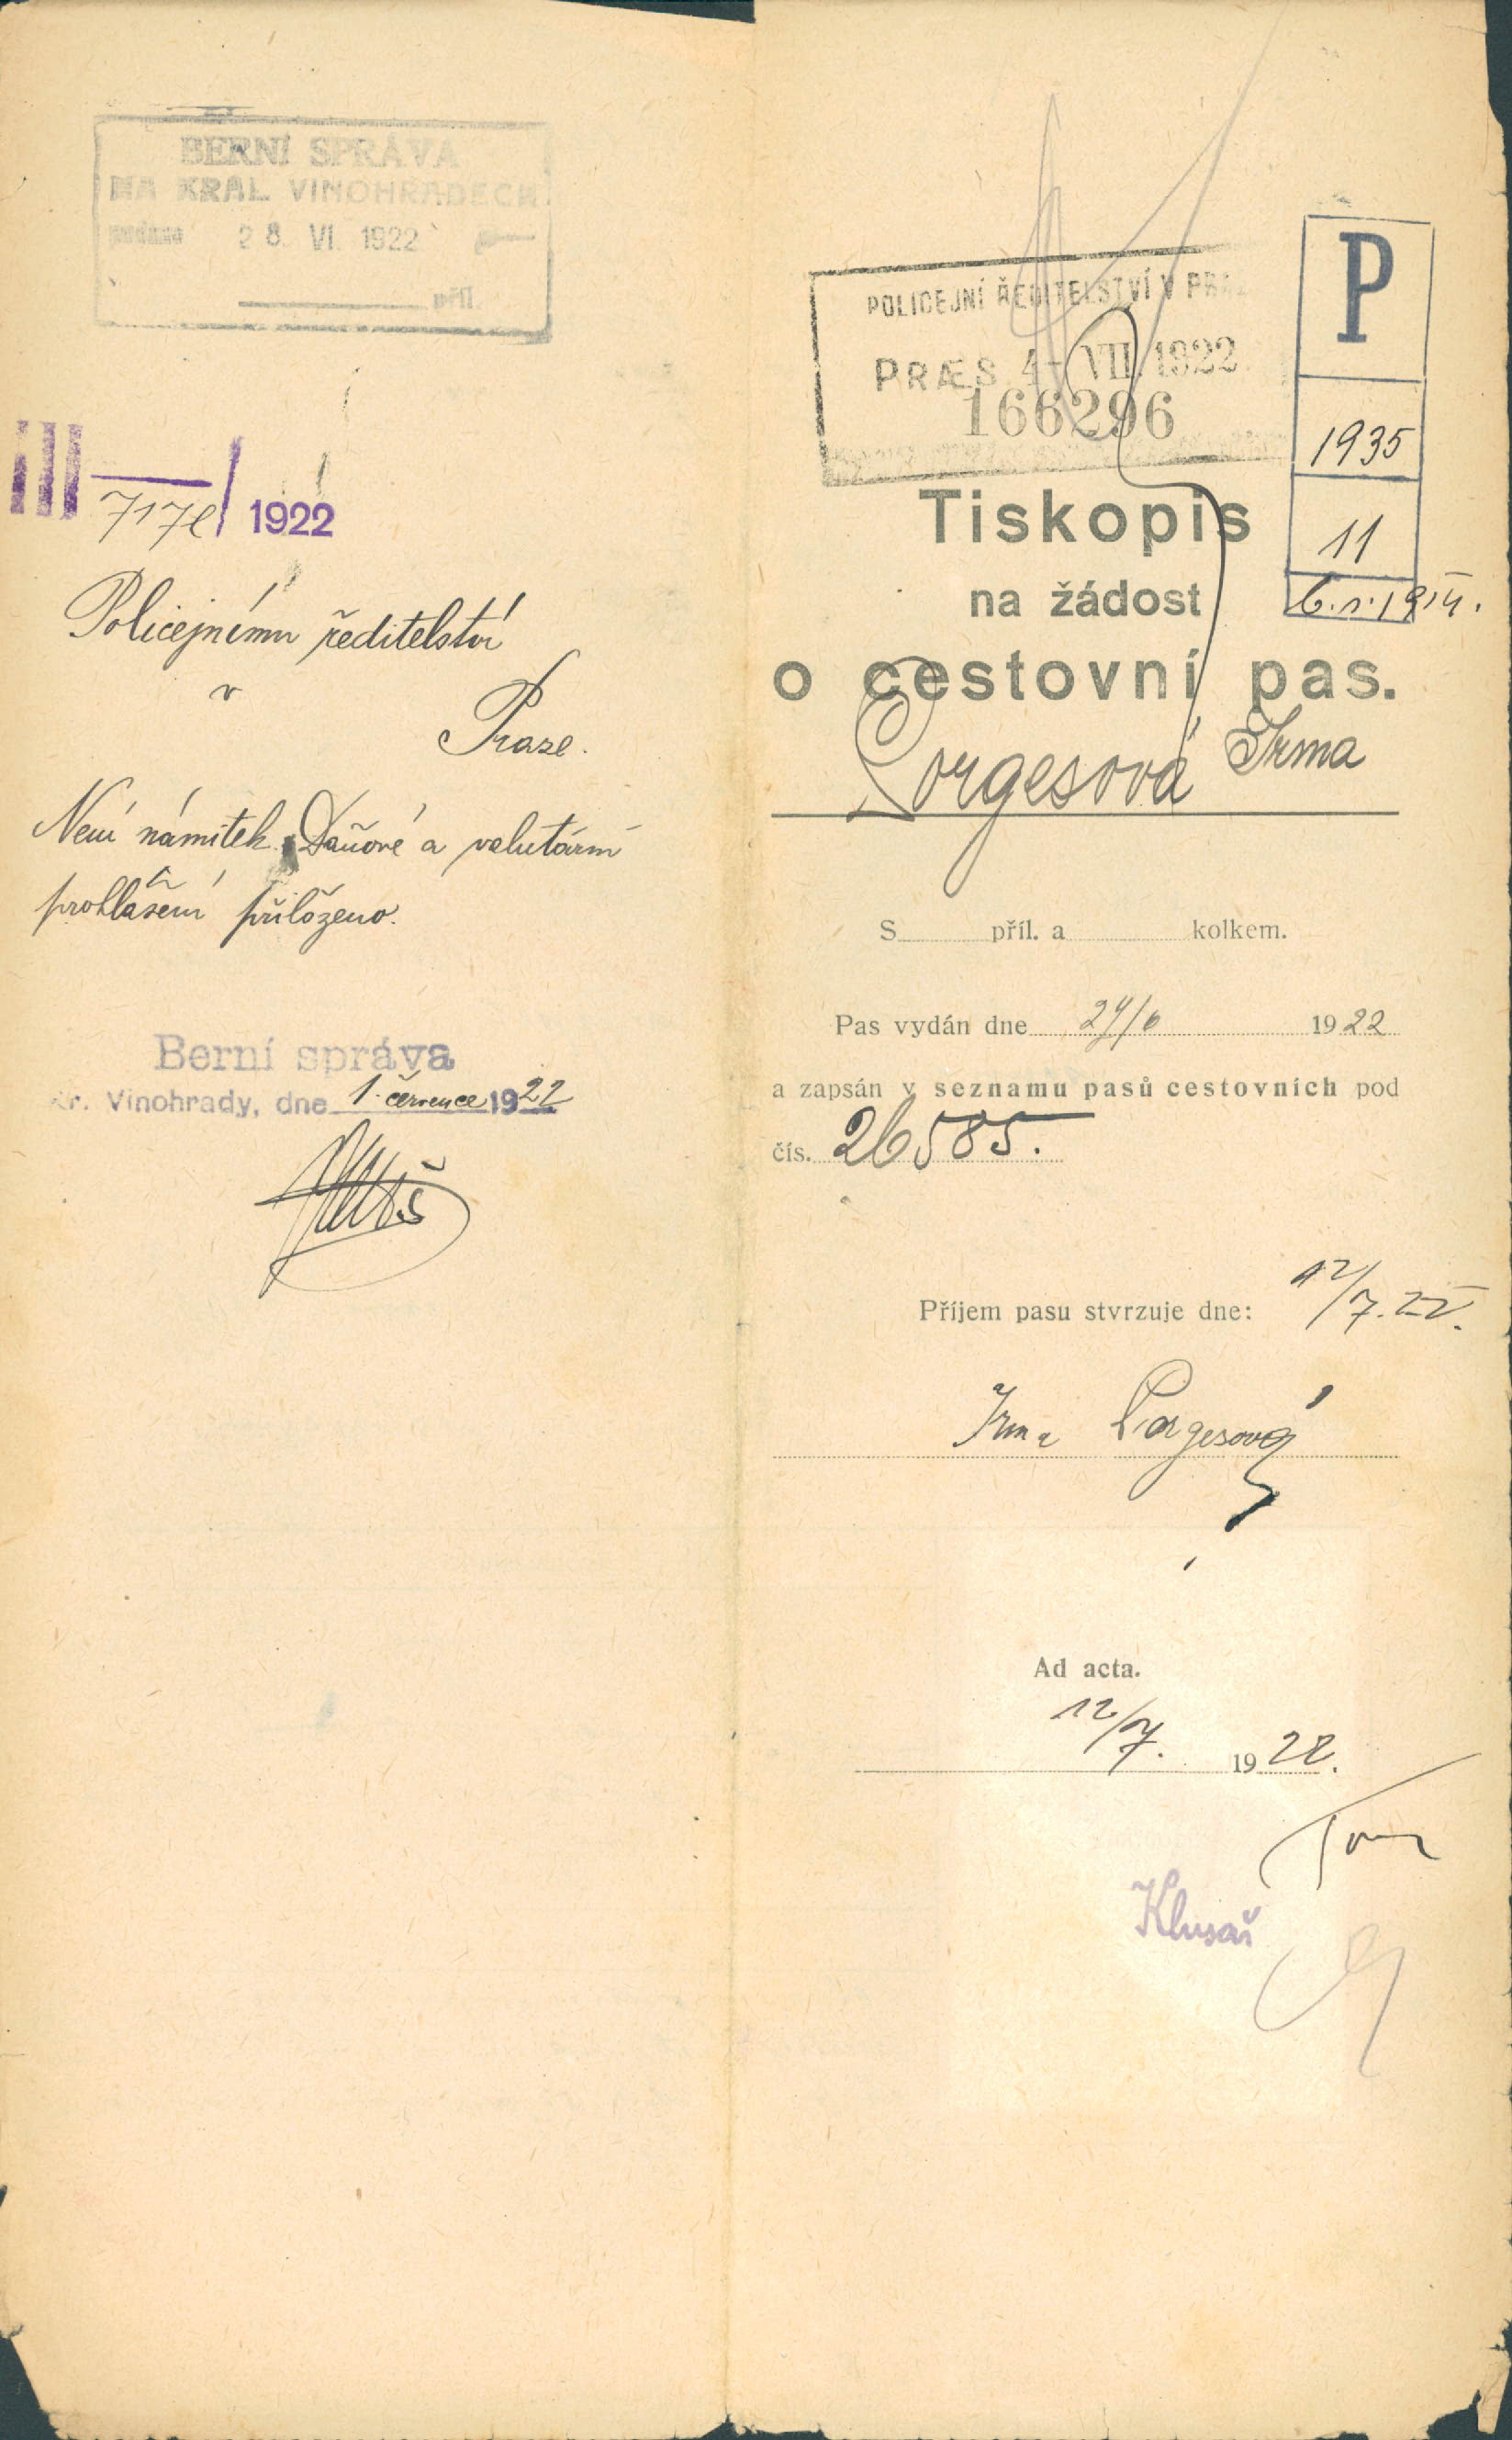 BERNÍ SPRÁVA
NA KRÁL. VINOHRADECH
28. VI. 1922
příl.
III 1922
Policejnímu ředitelství
v
Praze.
Není námitek. Daňové a valutární
prohlášení přiloženo.
Berní správa
Kr. Vinohrady, dne 1. července 1922
POLICEJNÍ ŘEDITELSTVÍ V PRAZE
PRÆS 4- VII. 1922
166296
P
1935
11
Tiskopis
na žádost
o cestovní pas.
Porgesová Irma
S příl. a kolkem.
Pas vydán dne 1922
a zapsán v seznamu pasů cestovních pod
čís. 26585.
Příjem pasu stvrzuje dne: 12/7. 22.
Irma Porgesová
Ad acta.
12/7. 1922.